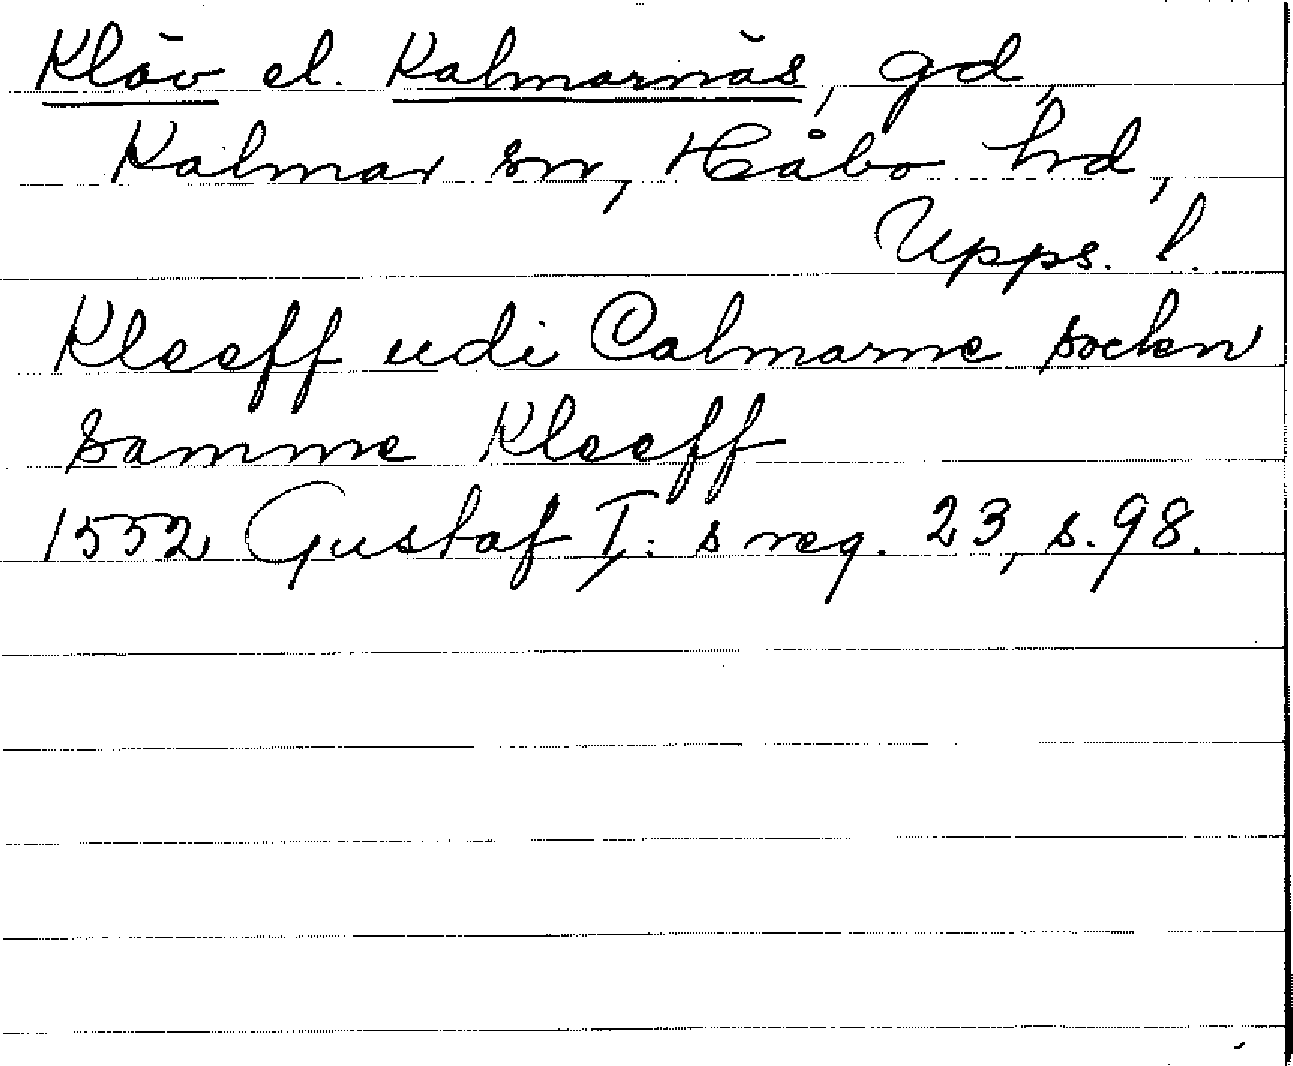 Kläv el. Kalmarnäs, gd,
Kalmar sn, Håbo hd,
Upps. l.
Kleeff udi Calmarne socken
samme Kleeff
1552 Gustaf I: s reg. 23, s. 98.